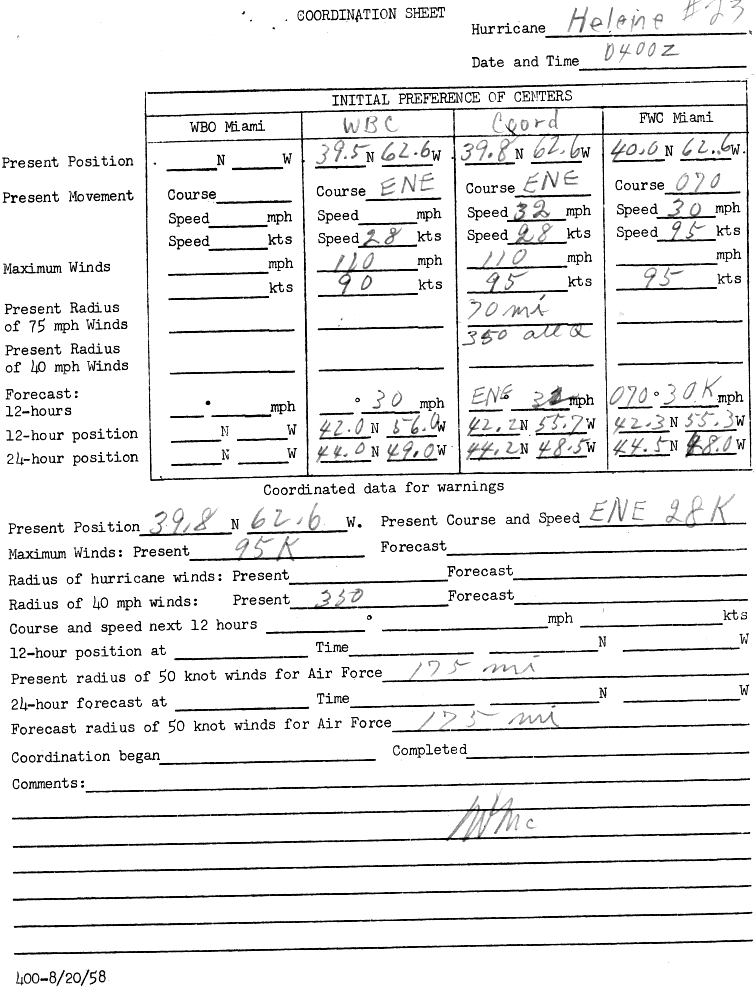 COORDINATION SHEET
Hurricane Helene #23
Date and Time 0400Z
INITIAL PREFERENCE OF CENTERS
WBO Miami WBC Coord FWC Miami
Present Position N W 39.5 N 62.6 W 39.8 N 62.6 W 40.0 N 62.6 W.
Present Movement Course Course ENE Course ENE Course 070
Speed mph Speed mph Speed 32 mph Speed 30 mph
Speed kts Speed 28 kts Speed 28 kts Speed 95 kts
Maximum Winds mph 110 mph 110 mph mph
kts 90 kts 95 kts 95 kts
Present Radius
of 75 mph Winds 70 mi
Present Radius 350 all Q
of 40 mph Winds
Forecast:
12-hours ° mph ° 30 mph ENE ° mph 070 ° 30 K mph
12-hour position N W 42.0 N 56.0 W 42.2 N 55.7 W 42.3 N 55.3 W
24-hour position N W 44.0 N 49.0 W 44.2 N 48.5 W 44.5 N 48.0 W
Coordinated data for warnings
Present Position 39.8 N 62.6 W. Present Course and Speed ENE 28 K
Maximum Winds: Present 95 K Forecast
Radius of hurricane winds: Present Forecast
Radius of 40 mph winds: Present 350 Forecast
Course and speed next 12 hours ° mph kts
12-hour position at Time N W
Present radius of 50 knot winds for Air Force 175 mi
24-hour forecast at Time N W
Forecast radius of 50 knot winds for Air Force 175 mi
Coordination began Completed
Comments:
400-8/20/58